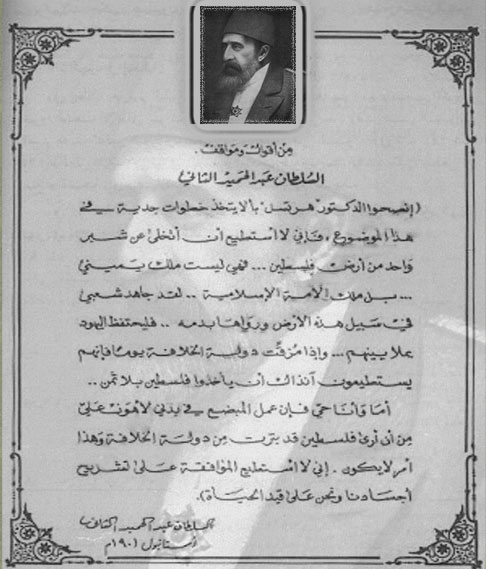 من أقوال ومواقف .
السلطان عبد الحميد الثاني
( إنصحوا الدكتور "هرتسل" بألا يتخذ خطوات جدية في
هذا الموضوع ، فإني لا أستطيع أن أتخلى عن شبر
واحد من أرض فلسطين ... فهي ليست ملك يميني
... بل ملك الأمة الإسلامية .. لقد جاهد شعبي
في سبيل هذه الأرض ورواها بدمه .. فليحتفظ اليهود
بملايينهم ... وإذا مزقت دولة الخلافة يوما فإنهم
يستطيعون آنذاك أن يأخذوا فلسطين بلا ثمن ..
أما وأنا حي فإن عمل المبضع في بدني لأهون عليّ
من أن أرى فلسطين قد بترت من دولة الخلافة وهذا
أمر لا يكون . إني لا أستطيع الموافقة على تشريح
أجسادنا ونحن على قيد الحياة ).
السلطان عبد الحميد الثاني
استانبول ١٩٠١م